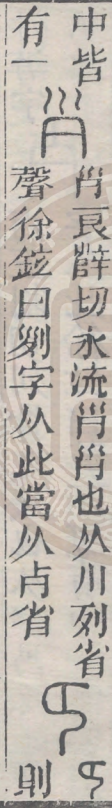 中皆
有一
𡿪良辥切永流𡿪𡿪也从川列省
聲徐鉉曰𠛱字从此當从歺省
則